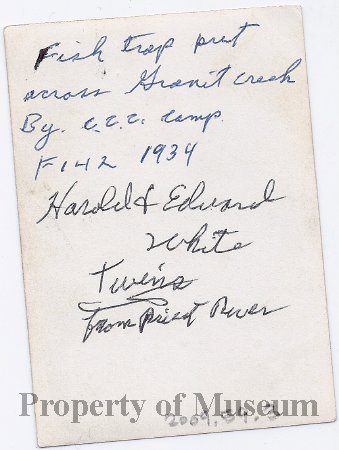 Fish trap put
across Granit creek
By. C.C.C. camp.
F142 1934
Harold & Edward
White
Twins
from Priest River
Property of Museum
2009.54.3